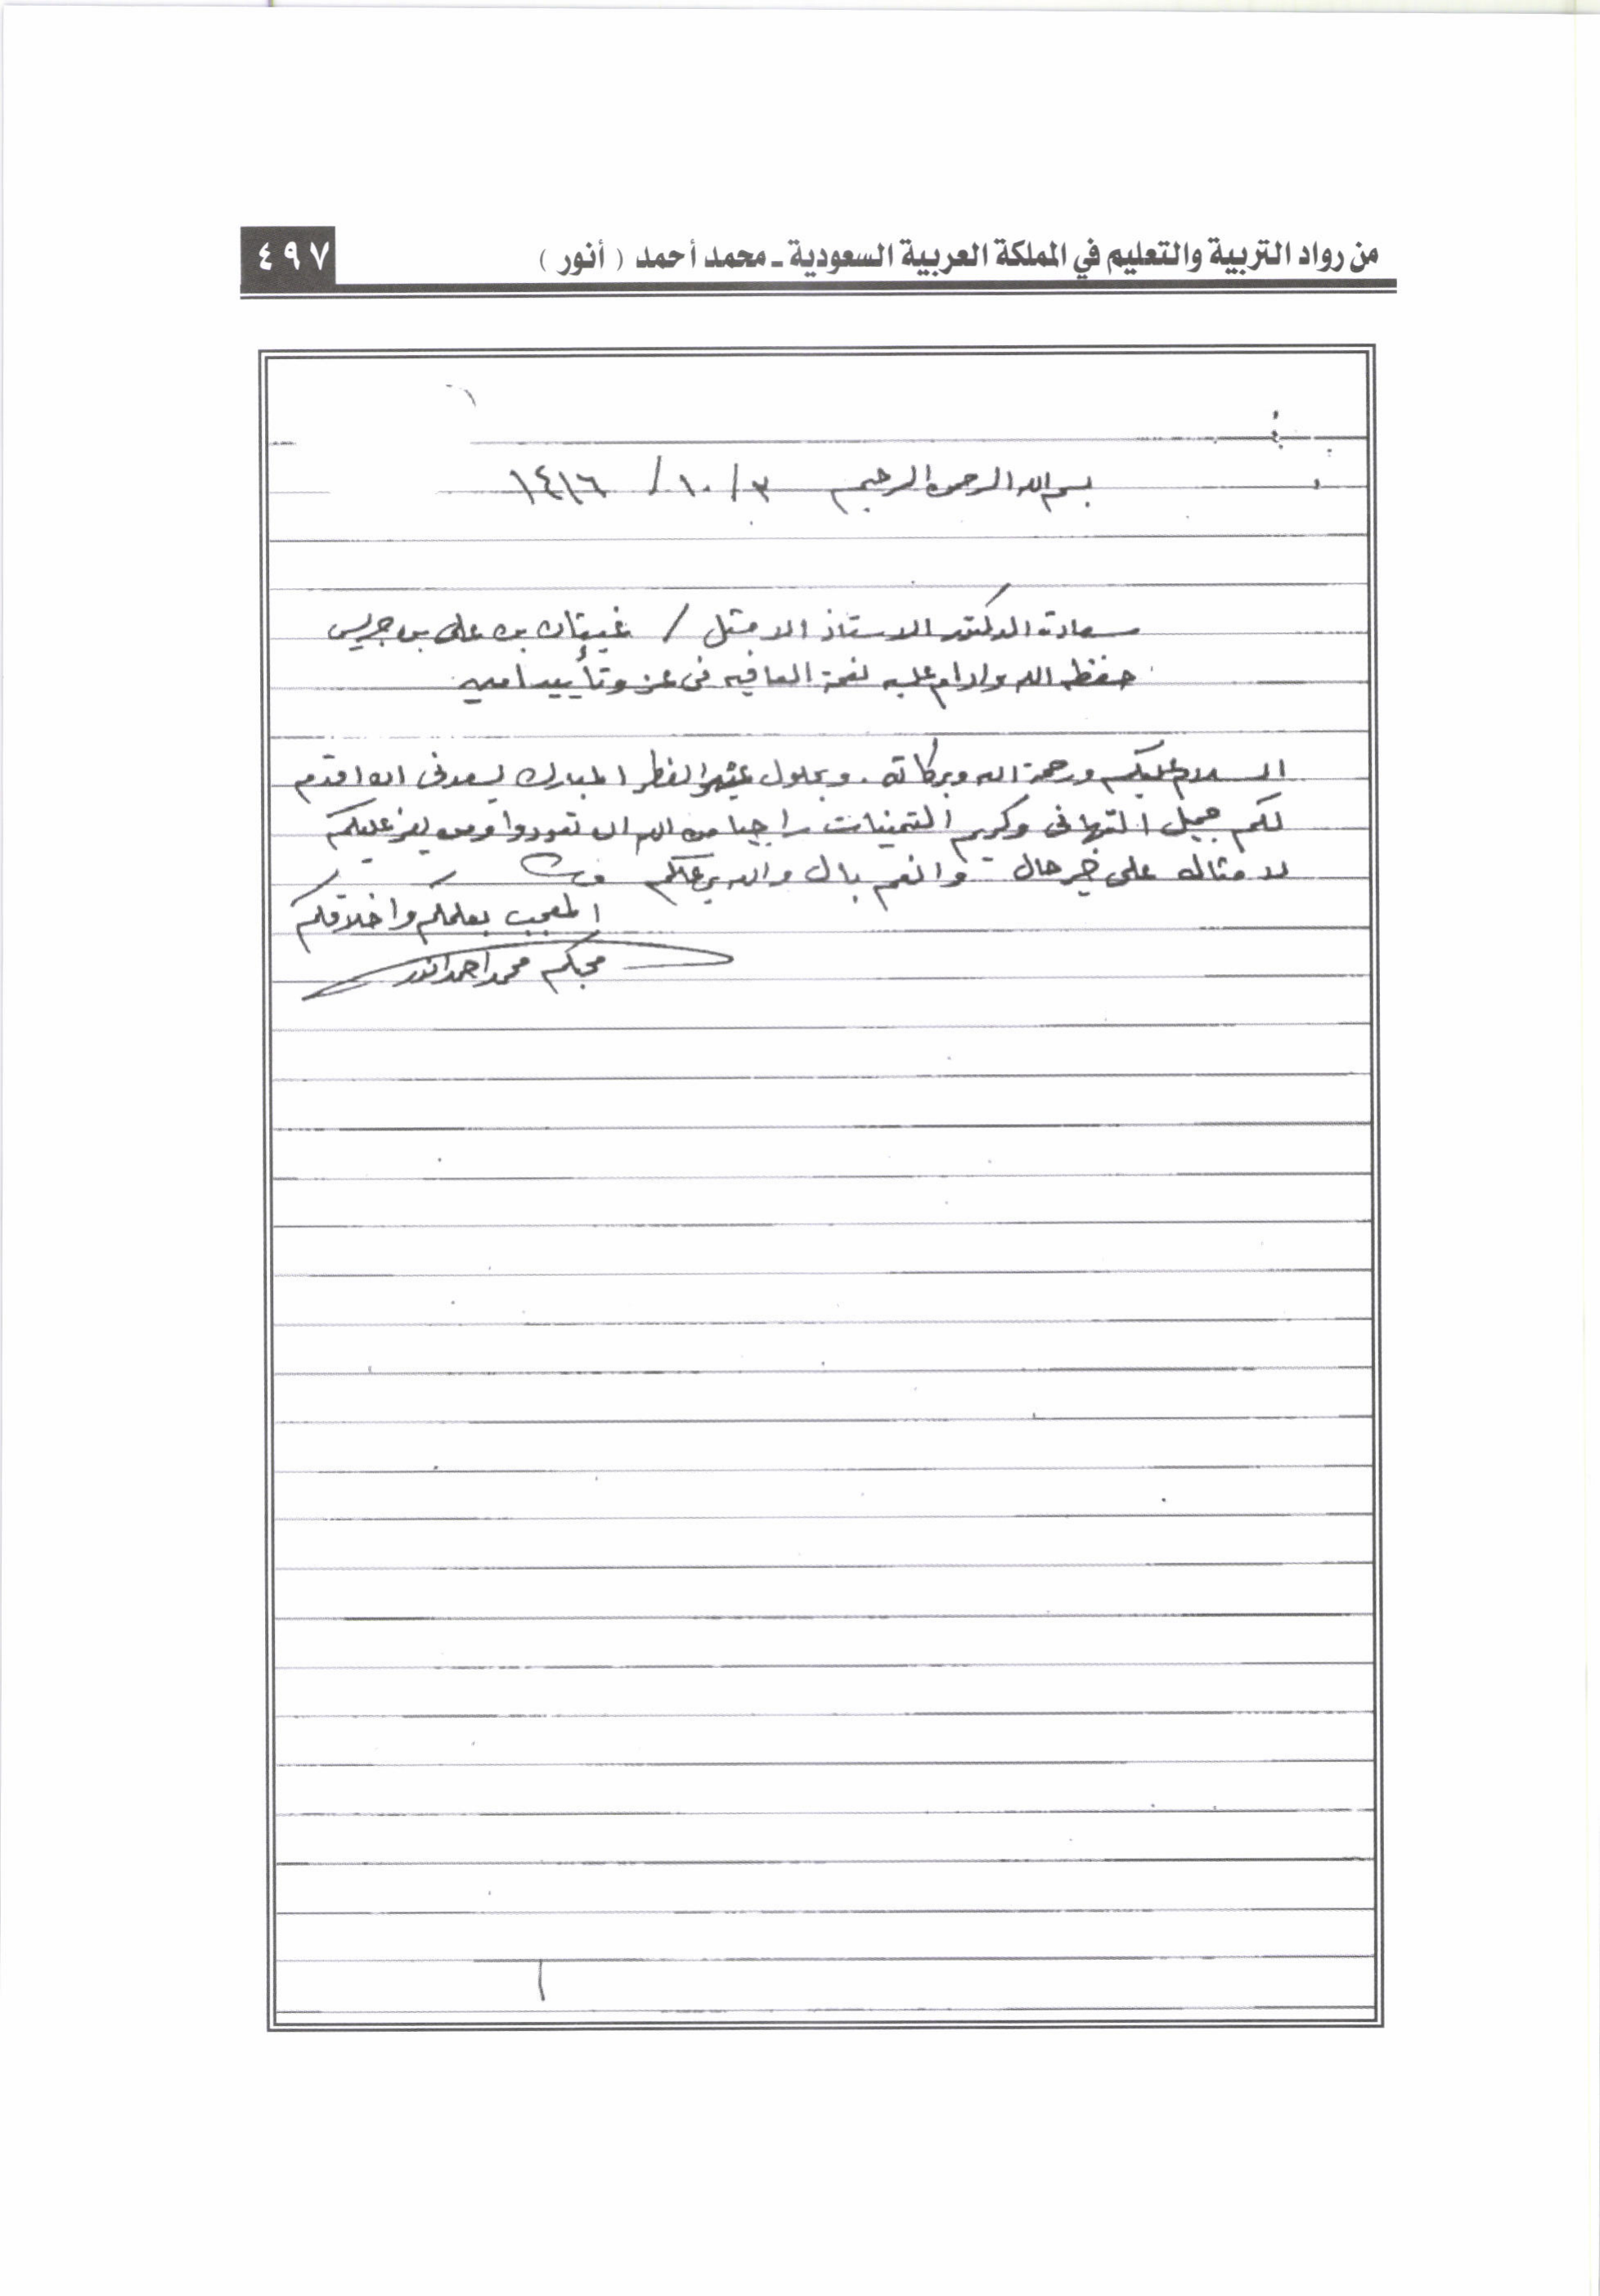 من رواد التربية والتعليم في المملكة العربية السعودية ـ محمد أحمد ( أنور )
٤٩٧
بسم الله الرحمن الرحيم ٣ / ١٠ / ١٤١٦
سعادة الدكتور الاستاذ الامثل / غيثان بن على بن جريس
حفظه الله وادام عليه نعمة العافيه فى عز وتأييد امين
السلام عليكم ورحمة الله وبركاته . وبحلول الفطر المبارك يسعدنى ان اقدم
لكم جميل التهانى وكريم التمنيات راجيا من الله ان تعودوا ومن يعز عليكم
لامثاله على خير حال وانعم بال والله يرعاكم
المعجب بعلمكم واخلاقكم
محبكم محمد احمد انور